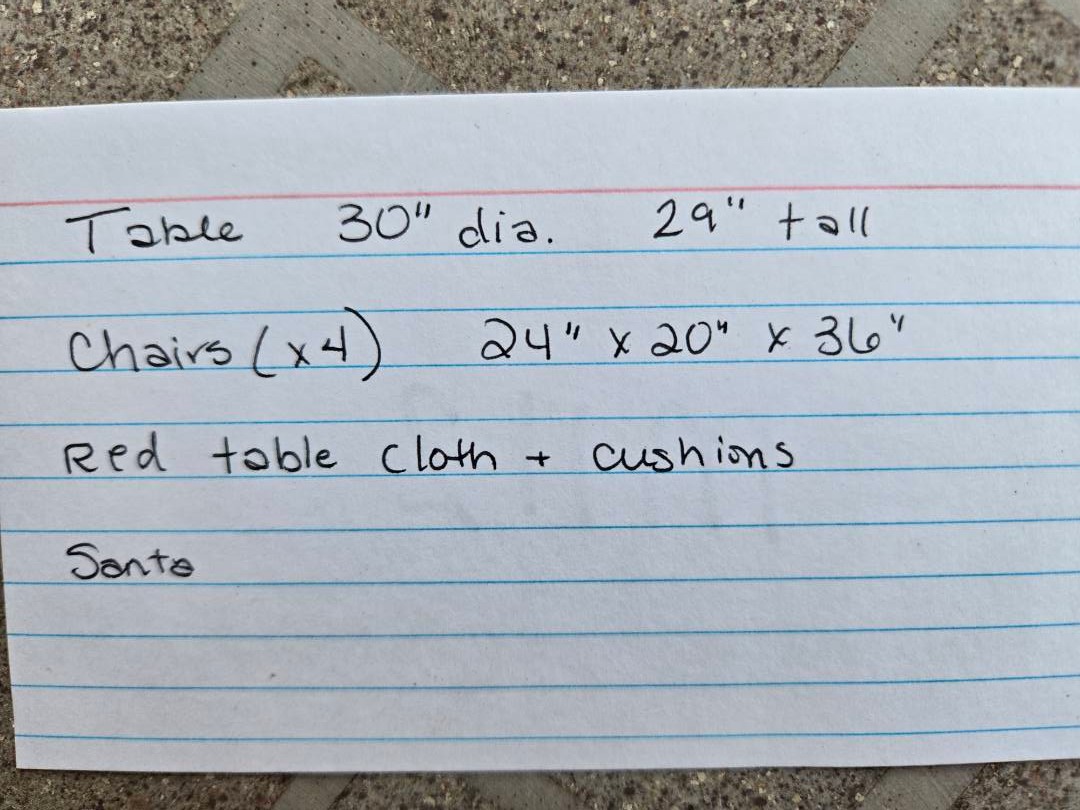 Table 30" dia. 29" tall
Chairs (x4) 24" x 20" x 36"
Red table cloth + cushions
Santa